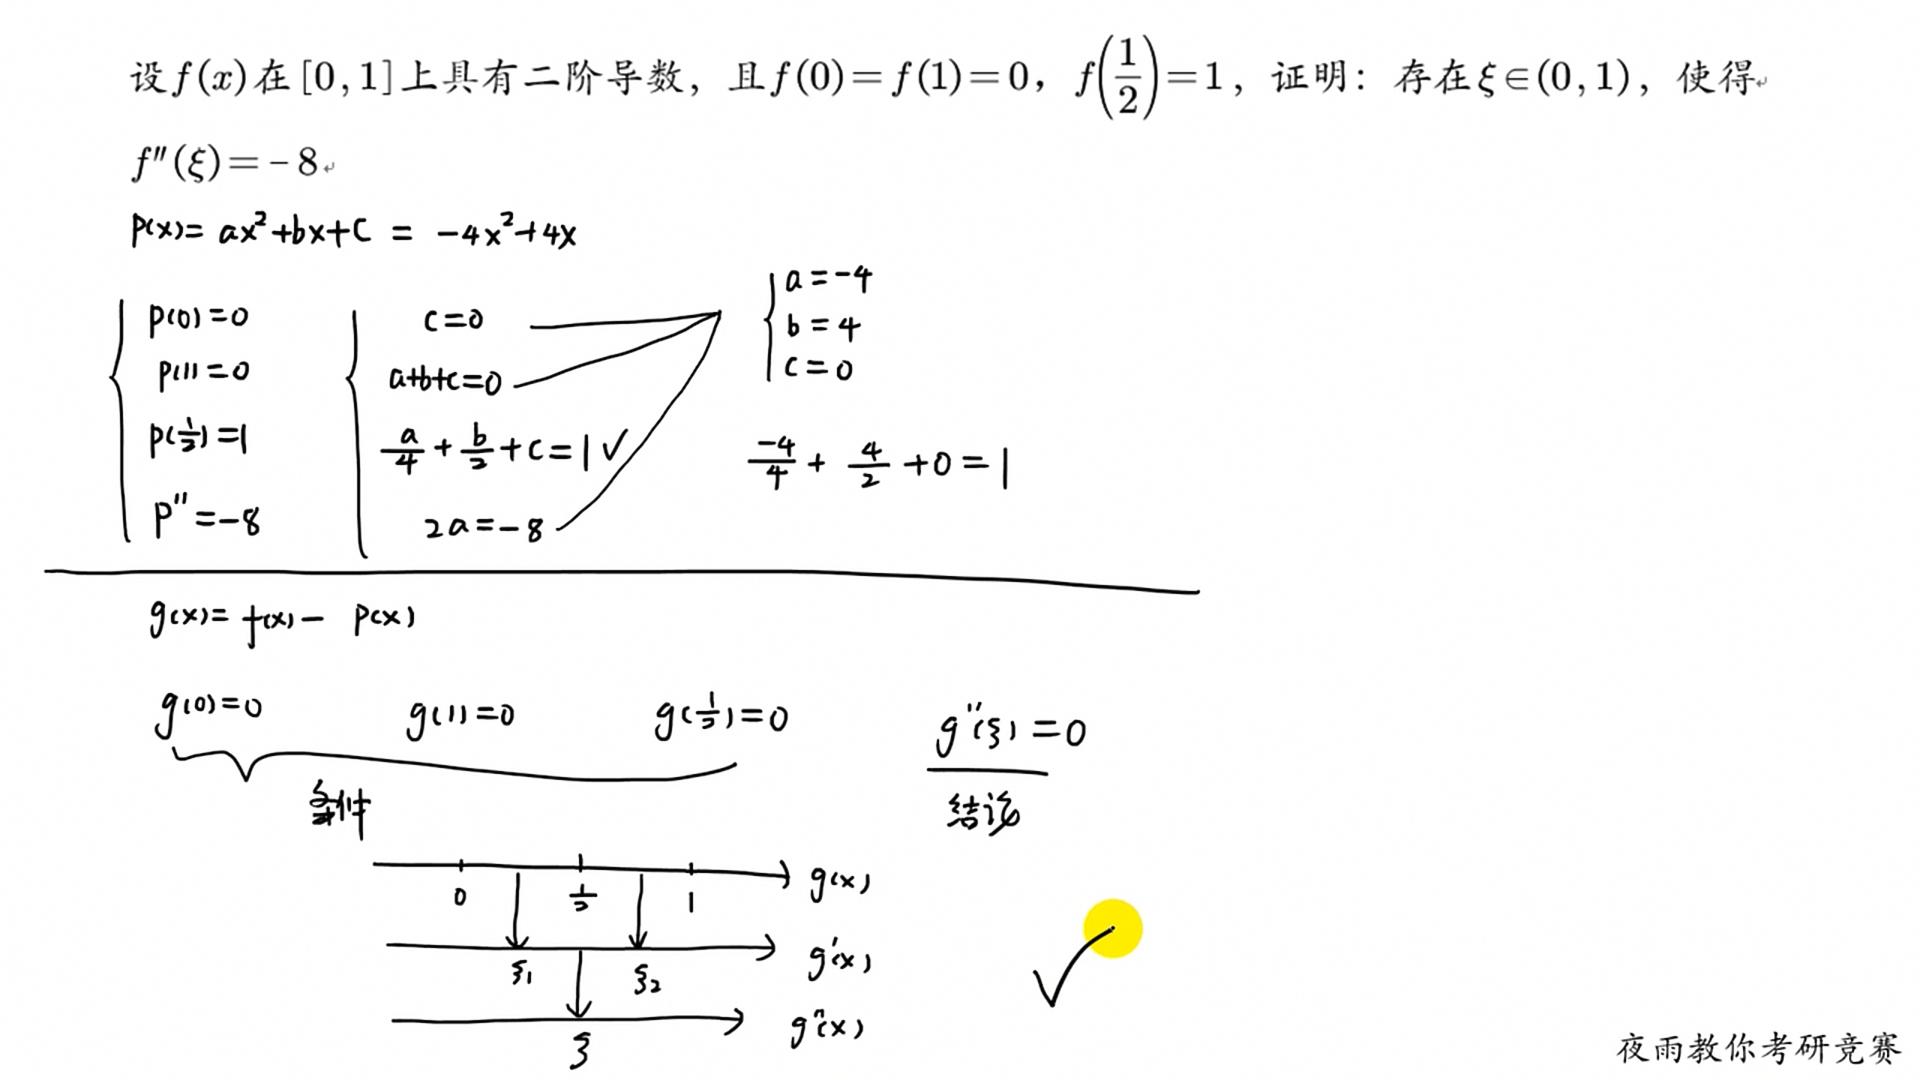 设f(x)在[0,1]上具有二阶导数，且f(0)=f(1)=0，f(1/2)=1，证明：存在ξ∈(0,1)，使得
f''(ξ)=-8
p(x)= ax²+bx+c = -4x²+4x
p(0)=0 c=0 a=-4
p(1)=0 a+b+c=0 b=4
c=0
p(1/2)=1 a/4+b/2+c=1 ✓ -4/4+4/2+0=1
p''=-8 2a=-8
g(x)= f(x)- p(x)
g(0)=0 g(1)=0 g(1/2)=0 g''(ξ)=0
条件 结论
0 1/2 1 g(x)
ξ1 ξ2 g'(x)
ξ g''(x)
夜雨教你考研竞赛